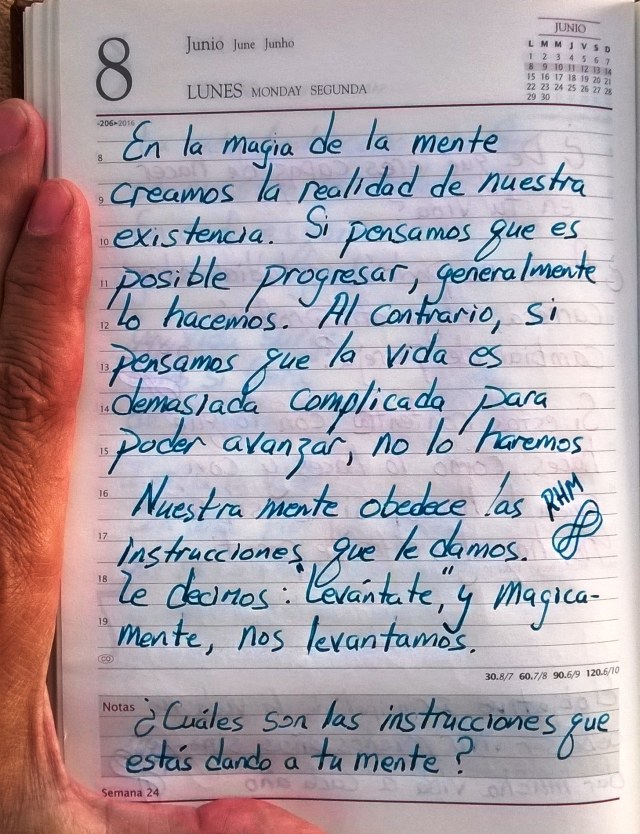 8
Junio June Junho
LUNES MONDAY SEGUNDA
JUNIO
L M M J V S D
1 2 3 4 5 6 7
8 9 10 11 12 13 14
15 16 17 18 19 20 21
22 23 24 25 26 27 28
29 30
-206>2016
8 En la magia de la mente
9 creamos la realidad de nuestra
10 existencia. Si pensamos que es
11 posible progresar, generalmente
12 lo hacemos. Al contrario, si
13 pensamos que la vida es
14 demasiada complicada para
15 poder avanzar, no lo haremos
16 Nuestra mente obedece las RHM
17 instrucciones que le damos.
18 Le decimos: "Levántate," y magica-
19 mente, nos levantamos.
30.8/7 60.7/8 90.6/9 120.6/10
Notas ¿Cuáles son las instrucciones que
estás dando a tu mente?
Semana 24